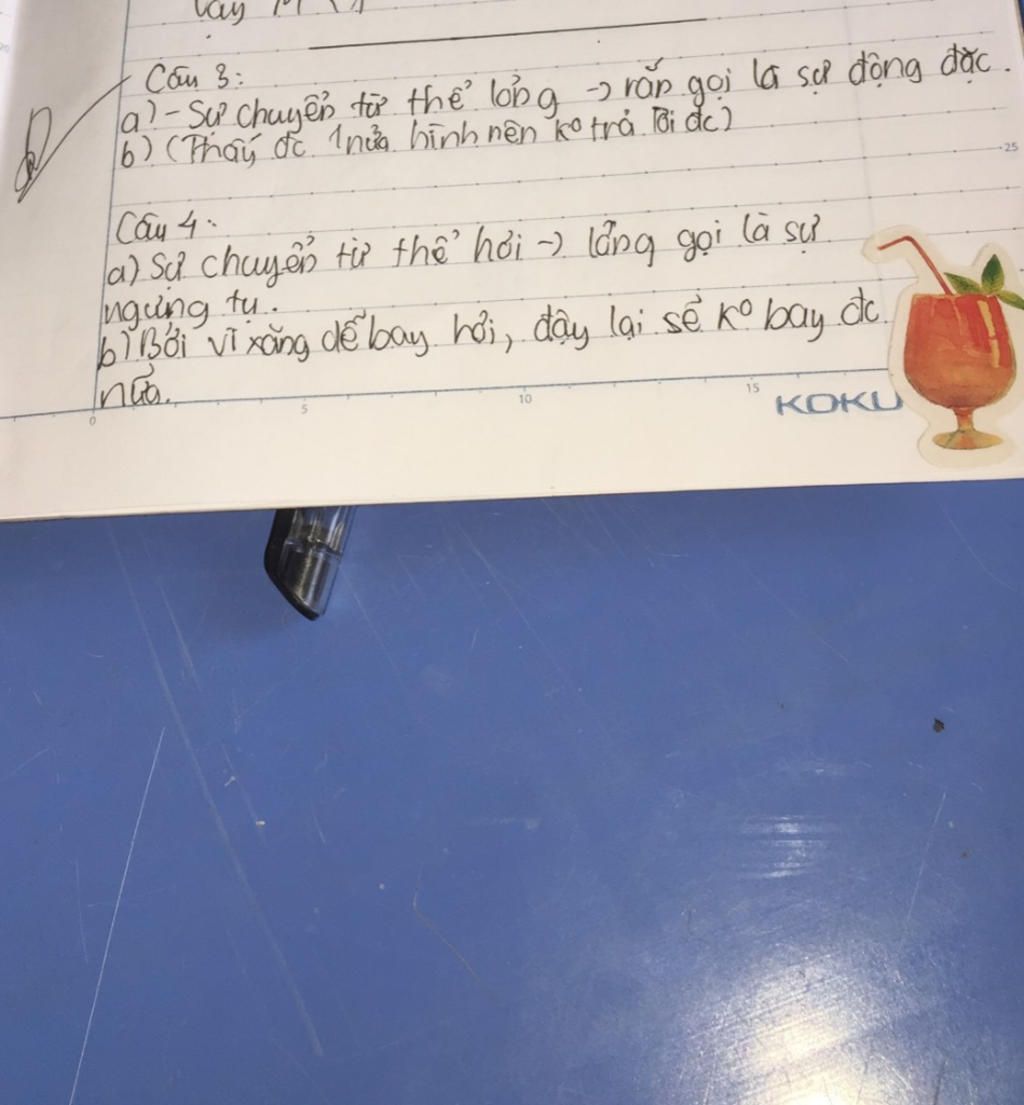 vậy
Câu 3:
a) - Sự chuyển từ thể lỏng -> rắn gọi là sự động đặc.
b) (Thấy đc 1 nửa hình nên ko trả lời đc)
25
Câu 4:
a) Sự chuyển từ thể hơi -> lỏng gọi là sự
ngưng tụ.
b) Bởi vì xăng dễ bay hơi, đậy lại sẽ ko bay đc
nữa.
0 5 10 15
KOKU